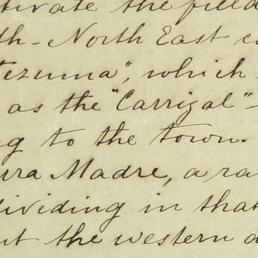 tivate the field
th-North East co
tezuma", which
as the "Carrizal"-
g to the town.
rra Madre, a ra
dividing in that
ut the western a